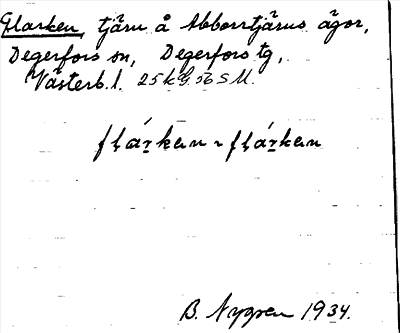 Glarken, tjärn å Abborrtjärns ägor,
Degerfors sn, Degerfors tg,
Västerb. l. 25 k S. 56 S M.
B. Nygren 1934.